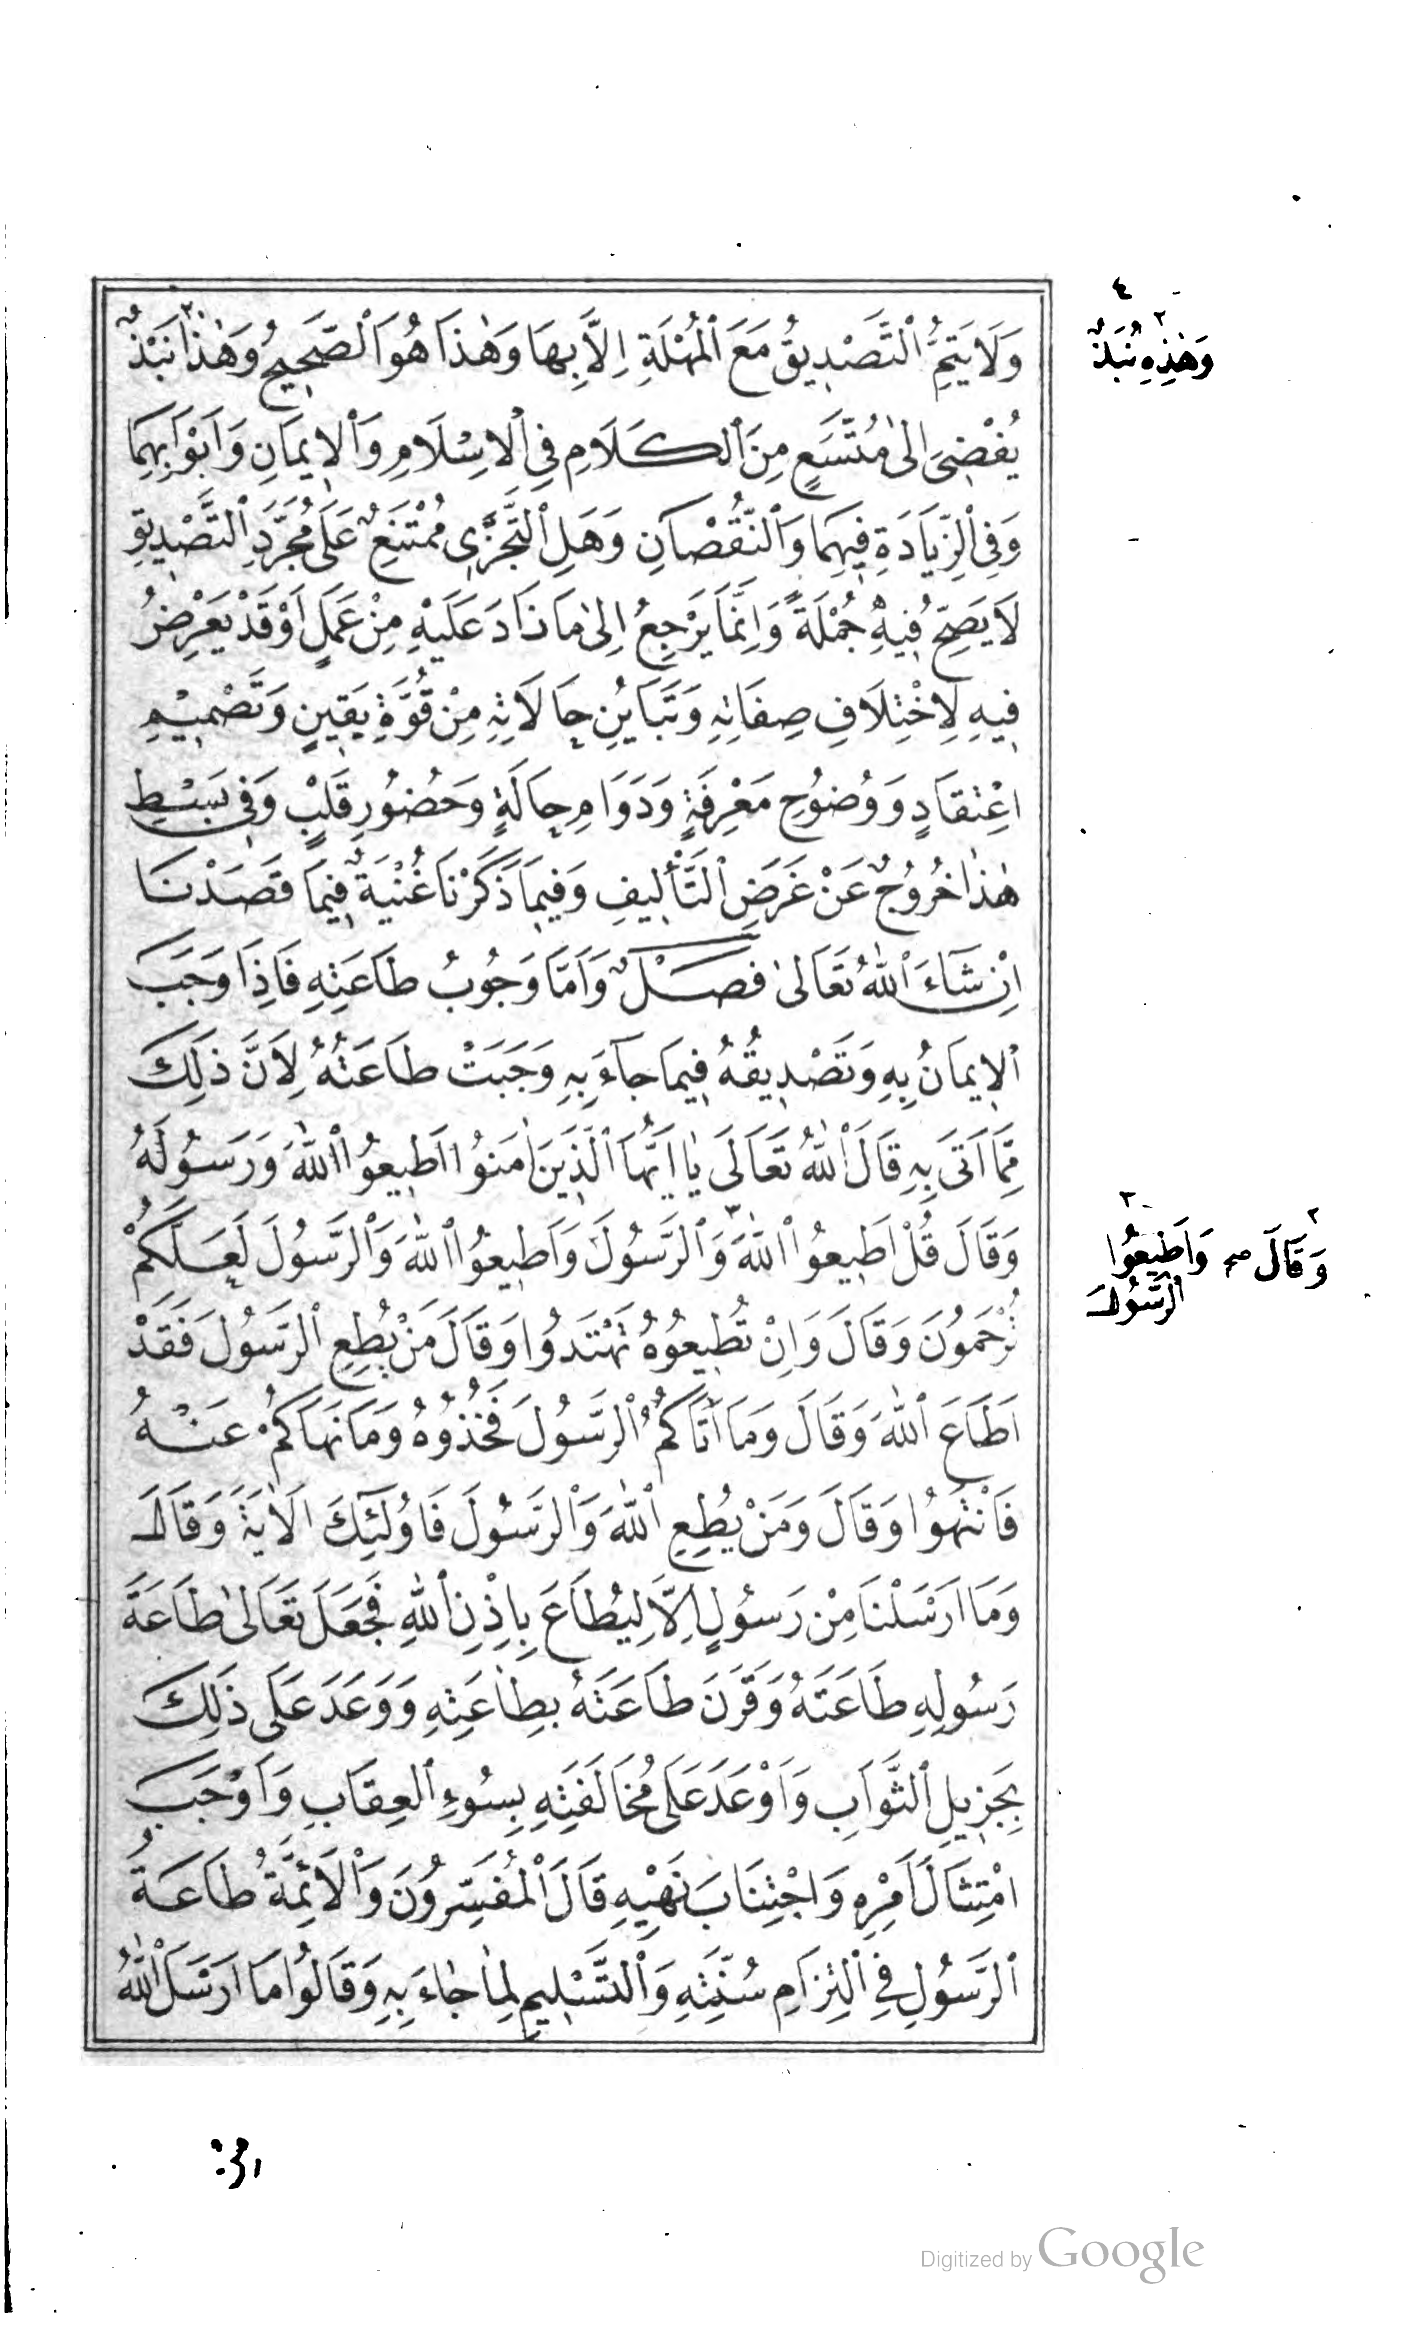 وَلَا يَتِمُّ ٱلتَّصْدِيقُ مَعَ ٱلْمُهْلَةِ اِلَّا بِهَا وَهٰذَا هُوَ ٱلصَّحِيحُ وَهٰذَا نَبْذٌ
يُفْضِىَ اِلٰى مُتَّسَعٍ مِنَ ٱلْكَلَامِ فِى ٱلْاِسْلَامِ وَٱلْاِيمَانِ وَاَبْوَابِهِمَا
وَفِى ٱلزِّيَادَةِ فِيهِمَا وَٱلنُّقْصَانِ وَهَلِ ٱلتَّجَزِّى مُمْتَنِعٌ عَلَى مُجَرَّدِ ٱلتَّصْدِيقِ
لَا يَصِحُّ فِيهِ جُمْلَةً وَاِنَّمَا يَرْجِعُ اِلىٰ مَا زَادَ عَلَيْهِ مِنْ عَمَلٍ اَوْ قَدْ يَعْرِضُ
فِيهِ لِاخْتِلَافِ صِفَاتِهِ وَتَبَايُنِ حَالَاتِهِ مِنْ قُوَّةِ يَقِينٍ وَتَصْمِيْمِ
اعْتِقَادٍ وَوُضُوحِ مَعْرِفَةٍ وَدَوَامِ حَالَةٍ وَحُضُورِ قَلْبٍ وَفِى بَسْطِ
هٰذَا خُرُوجٌ عَنْ غَرَضِ ٱلتَّأْلِيفِ وَفِيمَا ذَكَرْنَا غُنْيَةٌ فِيمَا قَصَدْنَا
اِنْ شَاءَ ٱللّٰهُ تَعَالىٰ فَصْلٌ وَاَمَّا وُجُوبُ طَاعَتِهِ فَاِذَا وَجَبَ
ٱلْاِيمَانُ بِهِ وَتَصْدِيقُهُ فِيمَا جَآءَ بِهِ وَجَبَتْ طَاعَتُهُ لِاَنَّ ذٰلِكَ
مِمَّا اَتَى بِهِ قَالَ ٱللّٰهُ تَعَالَى يٰا اَيُّهَا ٱلَّذِينَ اٰمَنُوا اَطِيعُوا ٱللّٰهَ وَرَسُولَهُ
وَقَالَ قُلْ اَطِيعُوا ٱللّٰهَ وَٱلرَّسُولَ وَاَطِيعُوا ٱللّٰهَ وَٱلرَّسُولَ لَعَلَّكُمْ
تُرْحَمُونَ وَقَالَ وَاِنْ تُطِيعُوهُ تَهْتَدُوا وَقَالَ مَنْ يُطِعِ ٱلرَّسُولَ فَقَدْ
اَطَاعَ ٱللّٰهَ وَقَالَ وَمَا آتَاكُمُ ٱلرَّسُولَ فَخُذُوهُ وَمَا نَهَاكُمْ عَنْهُ
فَانْتَهُوا وَقَالَ وَمَنْ يُطِعِ ٱللّٰهَ وَٱلرَّسُولَ فَاُولٰئِكَ الْاٰيَةَ وَقَالَ
وَمَا اَرْسَلْنَا مِنْ رَسُولٍ اِلَّا لِيُطَاعَ بِاِذْنِ ٱللّٰهِ فَجَعَلَ تَعَالىٰ طَاعَةَ
رَسُولِهِ طَاعَتَهُ وَقَرَنَ طَاعَتَهُ بِطَاعَتِهِ وَوَعَدَ عَلَى ذٰلِكَ
بِجَزِيلِ ٱلثَّوَابِ وَاَوْعَدَ عَلَى مُخَالَفَتِهِ بِسُوءِ ٱلْعِقَابِ وَاَوْجَبَ
امْتِثَالَ اَمْرِهِ وَاجْتِنَابَ نَهْيِهِ قَالَ ٱلْمُفَسِّرُونَ وَٱلْاَئِمَّةُ طَاعَةُ
ٱلرَّسُولِ فِى ٱلْتِزَامِ سُنَّتِهِ وَٱلتَّسْلِيمِ لِمَا جَاءَ بِهِ وَقَالُوا مَا اَرْسَلَ ٱللّٰهُ
٤
٢
وَهٰذِهِ نُبَذٌ
٢ ٣
وَقَالَ صح وَاَطِيعُوا
ٱلرَّسُولَ
Digitized by Google